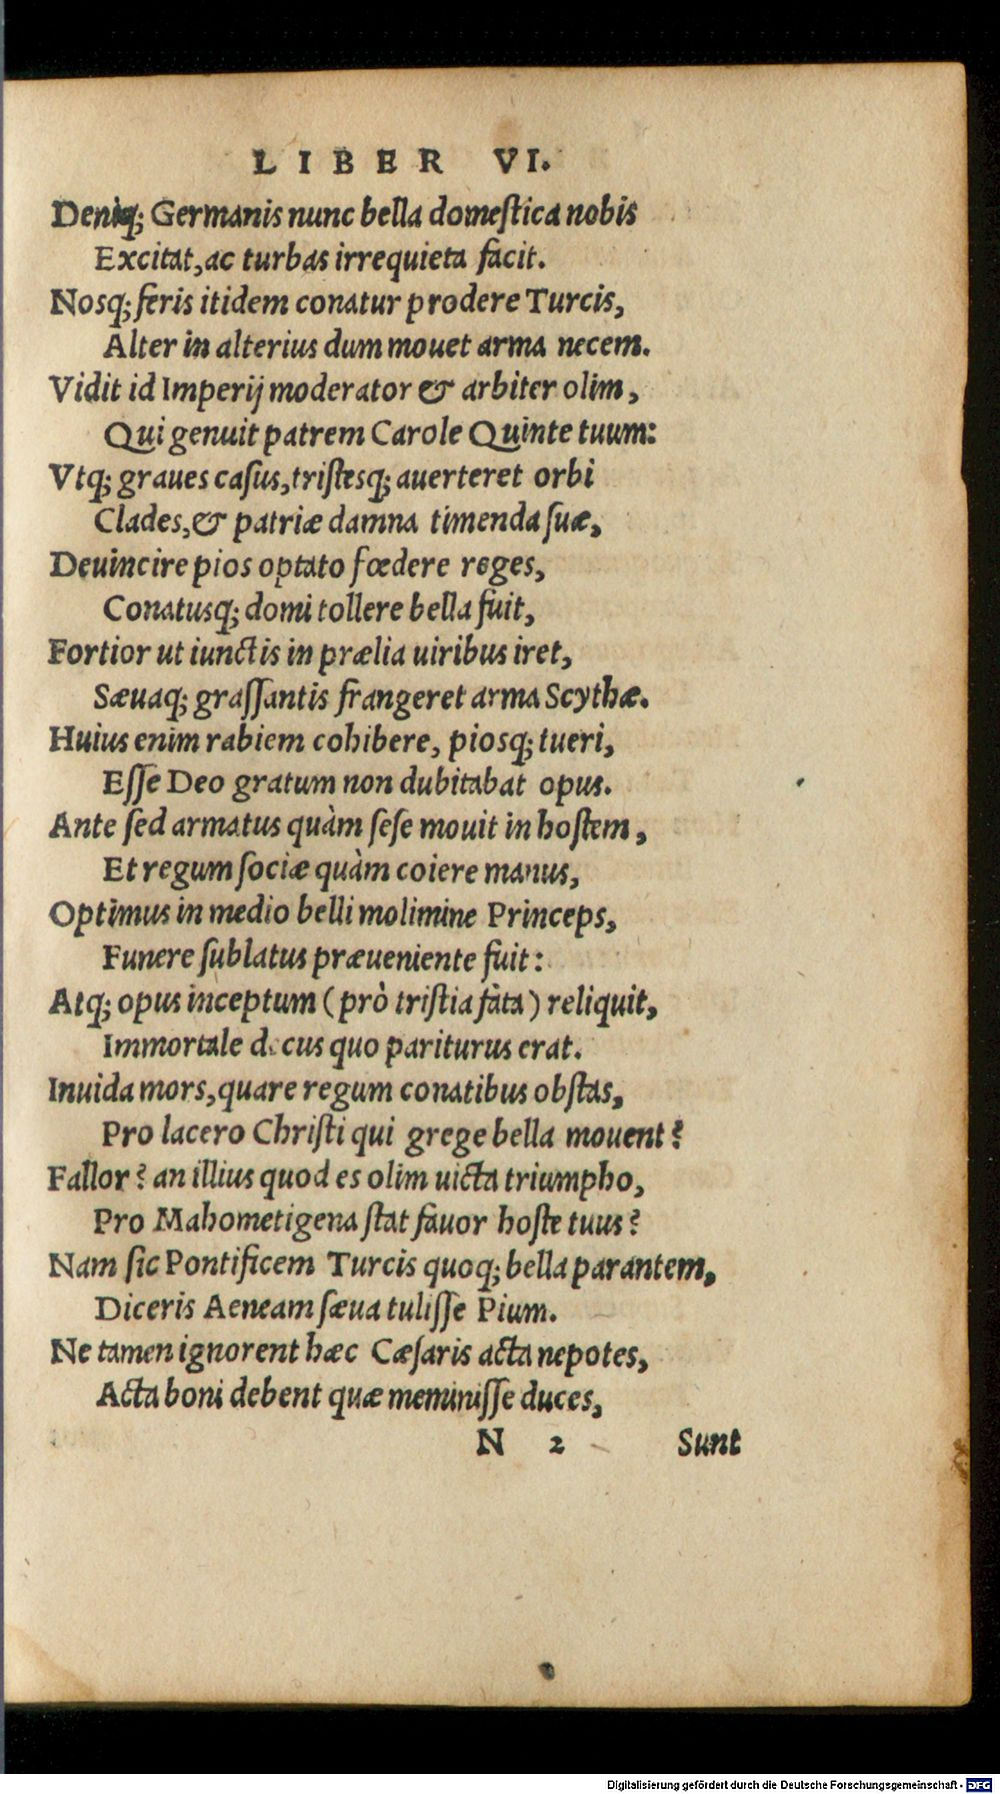 LIBER VI.
Deniq; Germanis nunc bella domeſtica nobis
Excitat, ac turbas irrequieta facit.
Nosq; feris itidem conatur prodere Turcis,
Alter in alterius dum mouet arma necem.
Vidit id Imperij moderator & arbiter olim,
Qui genuit patrem Carole Quinte tuum:
Vtq; graues caſus, triſtesq; auerteret orbi
Clades, & patriæ damna timenda ſuæ,
Deuincire pios optato fœdere reges,
Conatusq; domi tollere bella fuit,
Fortior ut iunctis in prælia uiribus iret,
Sæuaq; graſſantis frangeret arma Scythæ.
Huius enim rabiem cohibere, piosq; tueri,
Eſſe Deo gratum non dubitabat opus.
Ante ſed armatus quàm ſeſe mouit in hoſtem,
Et regum ſociæ quàm coiere manus,
Optimus in medio belli molimine Princeps,
Funere ſublatus præueniente fuit:
Atq; opus inceptum (prò triſtia fàta) reliquit,
Immortale decus quo pariturus erat.
Inuida mors, quare regum conatibus obſtas,
Pro lacero Chriſti qui grege bella mouent?
Fallor? an illius quod es olim uicta triumpho,
Pro Mahometigena ſtat fauor hoſte tuus?
Nam ſic Pontificem Turcis quoq; bella parantem,
Diceris Aeneam ſæua tuliſſe Pium.
Ne tamen ignorent hæc Cæſaris acta nepotes,
Acta boni debent quæ meminiſſe duces,
N 2 Sunt
Digitalisierung gefördert durch die Deutsche Forschungsgemeinschaft - DFG